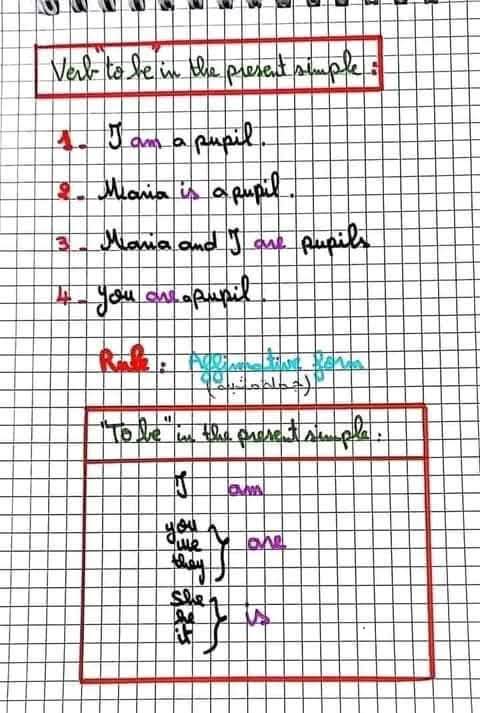 Verb "to be" in the present simple:
1- I am a pupil.
2- Maria is a pupil.
3- Maria and I are pupils
4- you are a pupil.
Rule: Affirmative form
(جملة مثبتة)
"To be" in the present simple:
I am
you
we
they
are
she
he
it
is